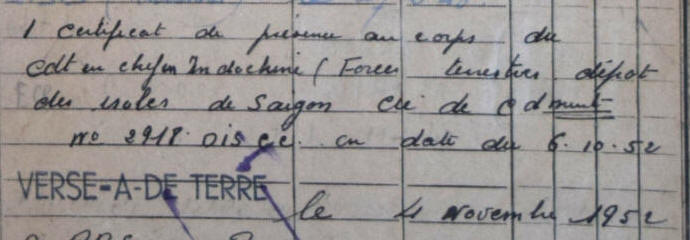 1 certificat de présence au corps du
Cdt en chef en Indochine (Forces terrestres dépôt
des isolés de Saigon Cie de Cdment
no 2918. OIS CE. en date du 6.10.52
VERSE-A-DE TERRE
le 4 Novembre 1952